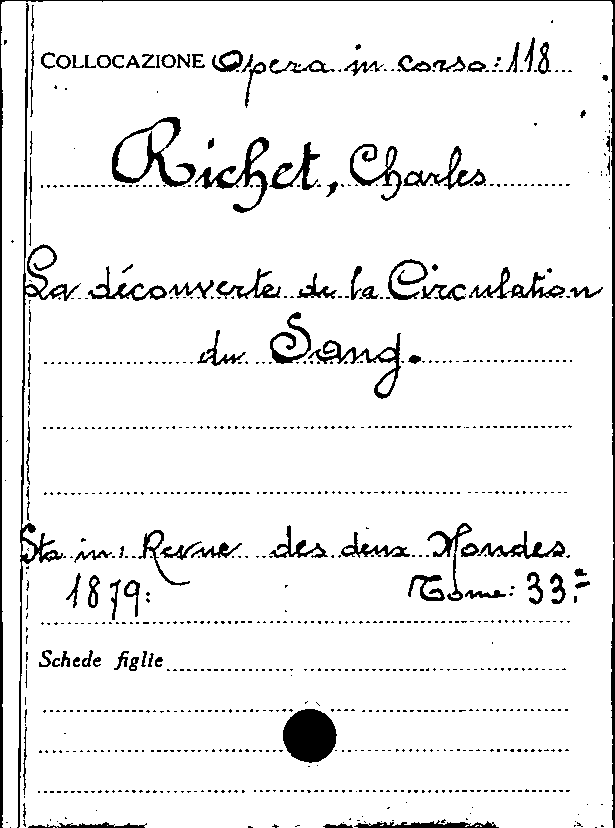 COLLOCAZIONE Opera in corso: 118
Richet, Charles
La découverte de la Circulation
du Sang.
Sta in: Revue des deux Mondes
1879: Tome: 33.=
Schede figlie